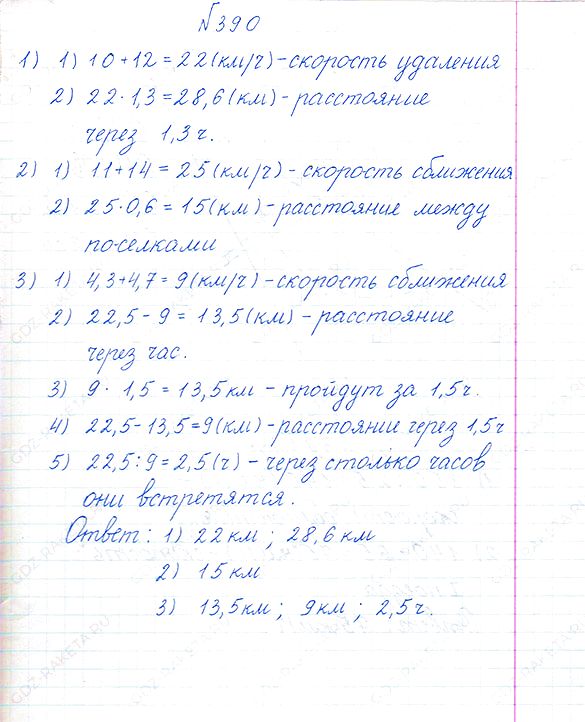 №390
1) 1) 10+12=22(км/ч)-скорость удаления
2) 22·1,3=28,6(км)-расстояние
через 1,3ч.
2) 1) 11+14=25(км/ч)-скорость сближения
2) 25·0,6=15(км)-расстояние между
поселками
3) 1) 4,3+4,7=9(км/ч)-скорость сближения
2) 22,5-9=13,5(км)-расстояние
через час.
3) 9·1,5=13,5км-пройдут за 1,5ч.
4) 22,5-13,5=9(км)-расстояние через 1,5ч
5) 22,5:9=2,5(ч)-через столько часов
они встретятся.
Ответ: 1) 22км; 28,6км
2) 15км
3) 13,5км; 9км; 2,5ч.
GDZ-RAKETA.RU